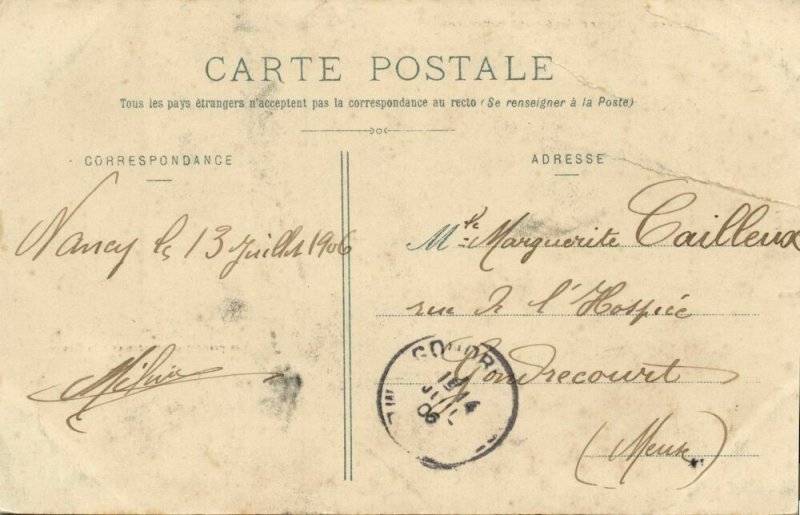 CARTE POSTALE
Tous les pays étrangers n'acceptent pas la correspondance au recto (Se renseigner à la Poste)
CORRESPONDANCE
Nancy le 13 Juillet 1906
ADRESSE
Mlle Marguerite Cailleux
rue de l'Hospice
Gondrecourt
(Meuse)
GONDR
14
JUIL
06